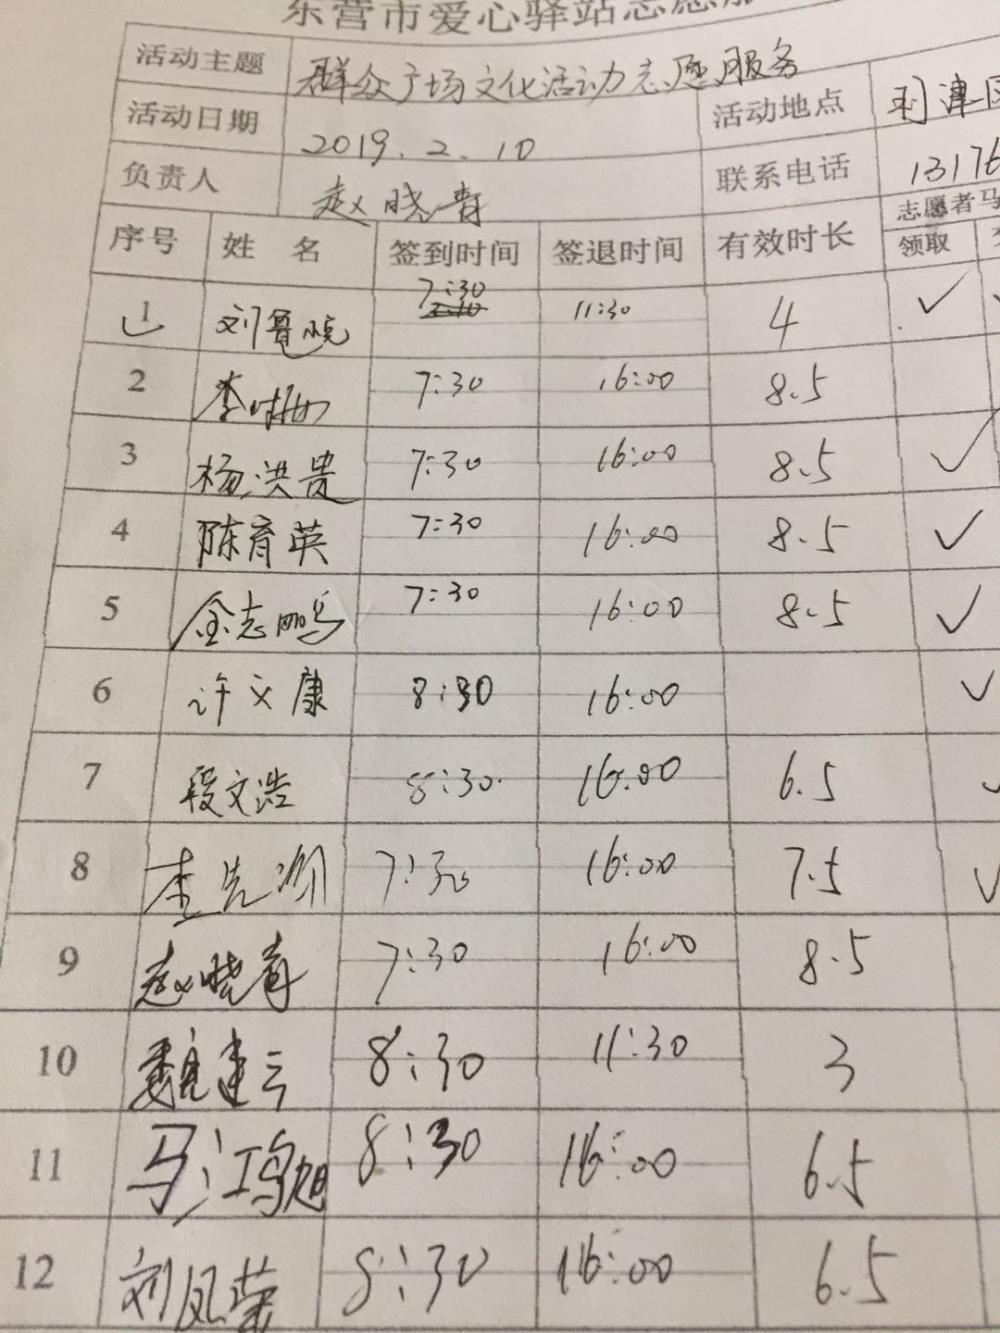 东营市爱心驿站志愿服
活动主题 群众广场文化活动志愿服务
活动日期 2019.2.10 活动地点 利津
负责人 赵晓青 联系电话 13176
序号 姓 名 签到时间 签退时间 有效时长 志愿者马
领取
1 7:30 11:30 4 ✓
2 李 7:30 16:00 8.5
3 杨洪贵 7:30 16:00 8.5 ✓
4 陈育英 7:30 16:00 8.5 ✓
5 金志鹏 7:30 16:00 8.5 ✓
6 许文康 8:30 16:00 ✓
7 段文浩 8:30 16:00 6.5
8 李先 7:30 16:00 7.5 ✓
9 赵晓青 7:30 16:00 8.5
10 魏建云 8:30 11:30 3
11 马鸿旭 8:30 16:00 6.5
12 刘凤荣 8:30 16:00 6.5